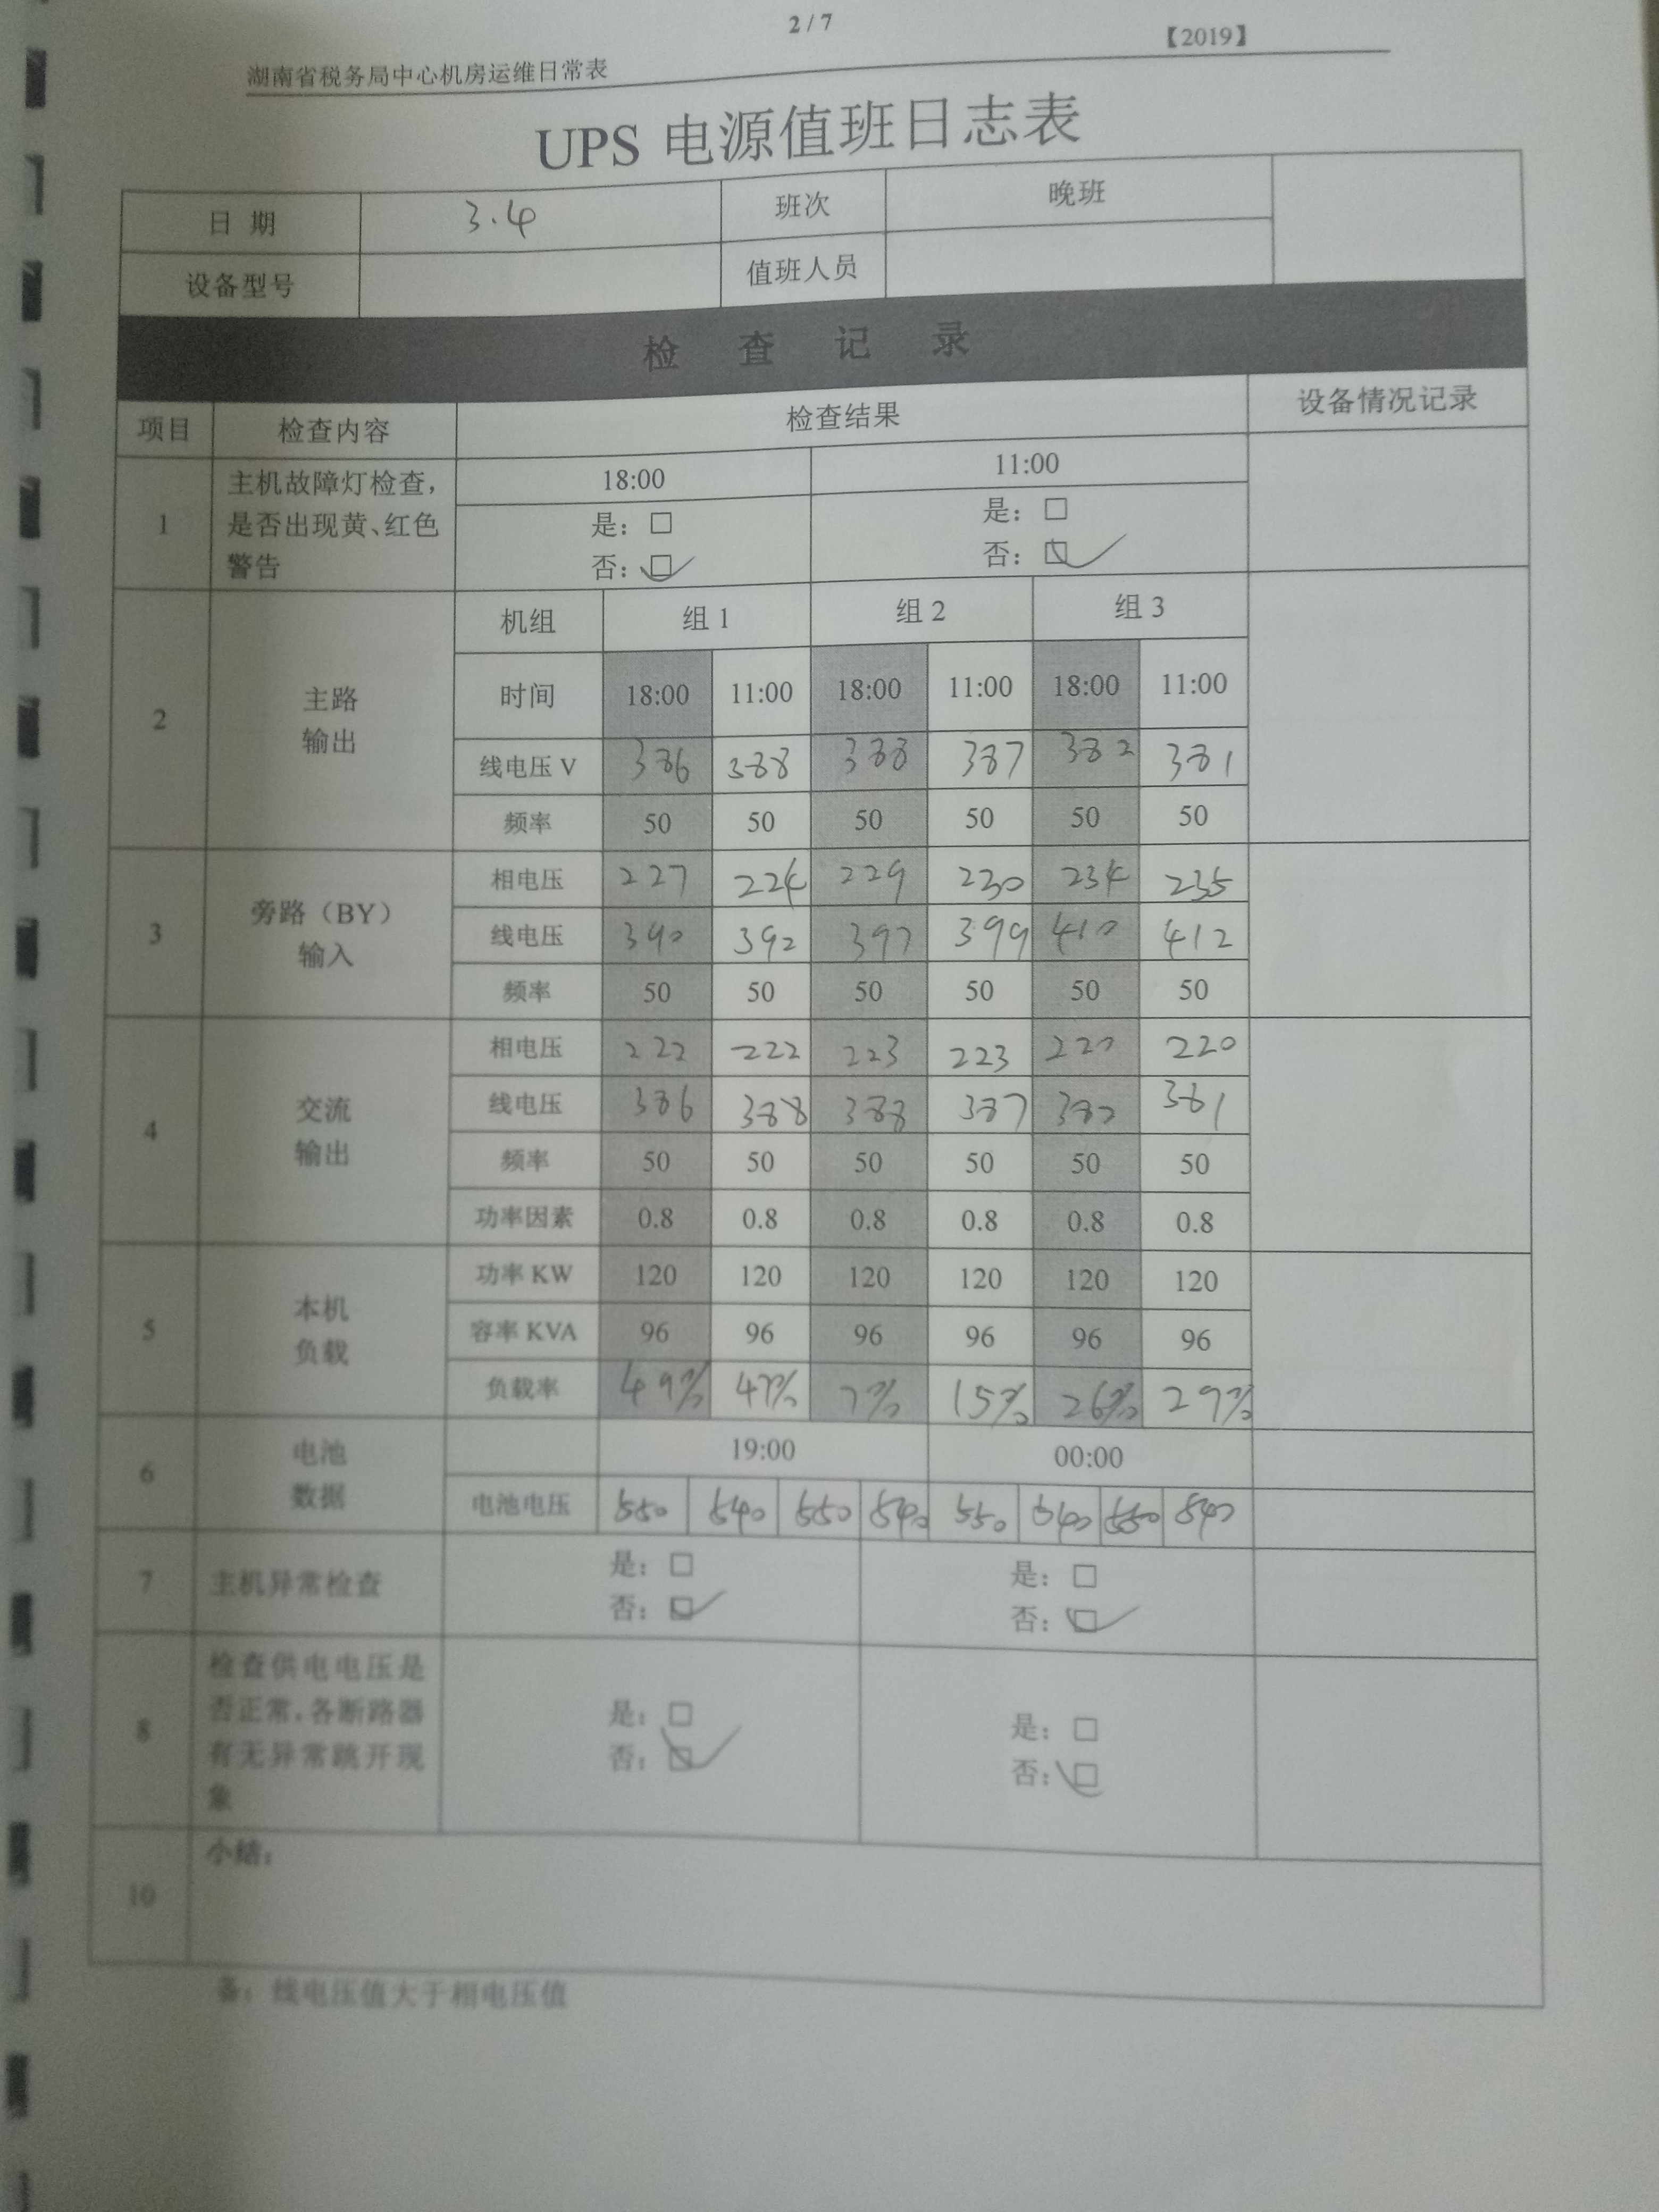 2 / 7
湖南省税务局中心机房运维日常表 【2019】
UPS 电源值班日志表
日 期 3.4 班次 晚班
设备型号 值班人员
检 查 记 录
项目 检查内容 检查结果 设备情况记录
1 主机故障灯检查，是否出现黄、红色警告 18:00 11:00
是：□ 是：□
否：☑ 否：☑
2 主路输出 机组 组 1 组 2 组 3
时间 18:00 11:00 18:00 11:00 18:00 11:00
线电压 V 386 388 388 387 382 381
频率 50 50 50 50 50 50
3 旁路（BY）输入 相电压 227 224 229 230 234 235
线电压 390 392 397 399 410 412
频率 50 50 50 50 50 50
4 交流输出 相电压 222 222 223 223 220 220
线电压 386 388 388 387 382 381
频率 50 50 50 50 50 50
功率因素 0.8 0.8 0.8 0.8 0.8 0.8
5 本机负载 功率 KW 120 120 120 120 120 120
容率 KVA 96 96 96 96 96 96
负载率 49% 47% 7% 15% 26% 29%
6 电池数据 19:00 00:00
电池电压 550 540 550 540 550 540 550 540
7 主机异常检查 是：□ 是：□
否：☑ 否：☑
8 检查供电电压是否正常，各断路器有无异常跳开现象 是：□ 是：□
否：☑ 否：☑
10 小结：
备：线电压值大于相电压值